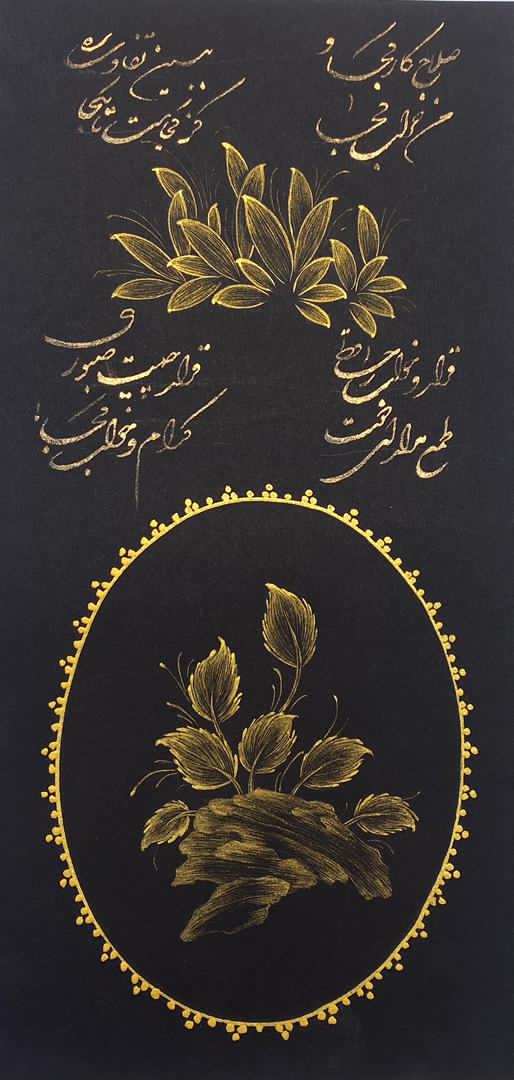 صلاح کار کجا و
من خراب کجا
ببین تفاوت ره
کز کجاست تا بکجا
قرار و خواب ز حافظ
طمع مدار ای دوست
قرار چیست صبوری
کدام و خواب کجا